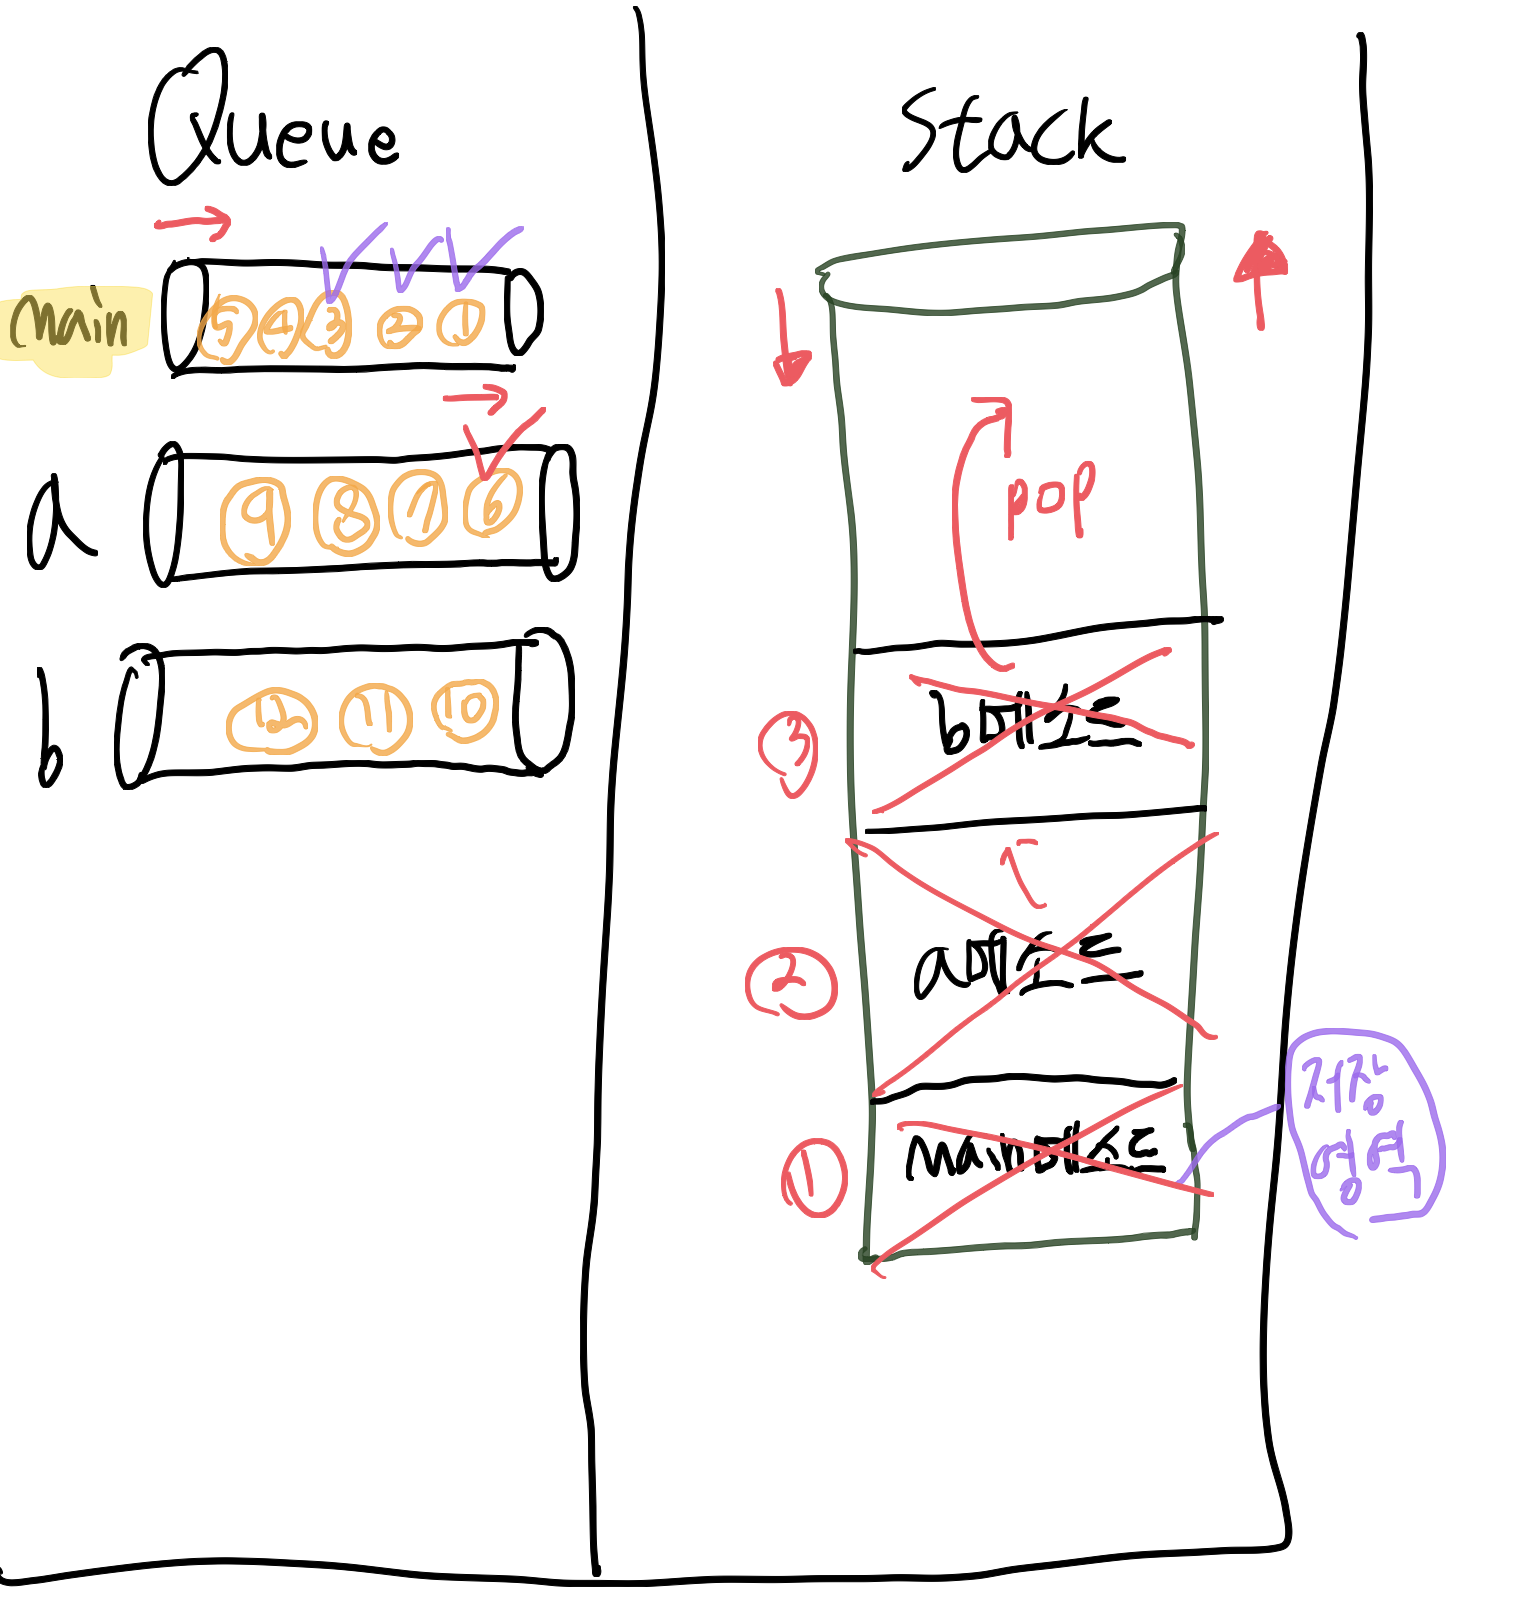 Queue
main
⑤ ④ ③ ② ①
a
⑨ ⑧ ⑦ ⑥
b
⑫ ⑪ ⑩
Stack
pop
③ b메소드
② a메소드
① main메소드
저장
영역